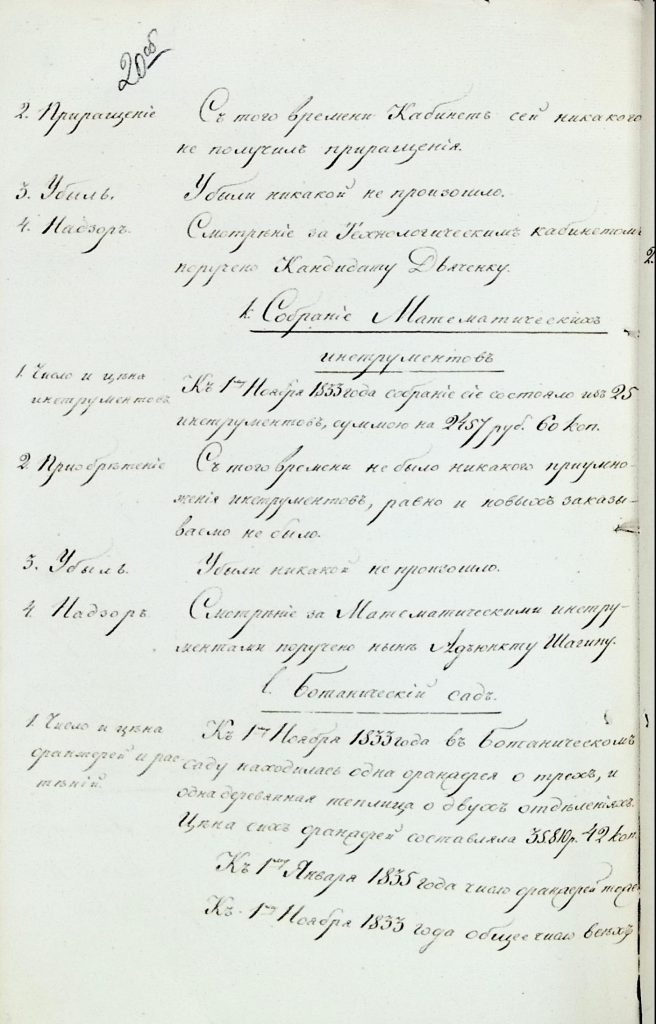 20 об
2. Приращеніе Съ того времени Кабинетъ сей никакого
не получилъ приращенія.
3. Убыль. Убыли никакой не произошло.
4. Надзоръ. Смотрѣніе за Технологическимъ кабинетомъ
поручено Кандидату Дьяченку.
k. Собраніе Математическихъ
инструментовъ
1. Число и цѣна Къ 1му Ноября 1833 года собраніе сіе состояло изъ 25
инструментовъ инструментовъ, суммою на 2457 руб. 60 коп.
2. Приобрѣтеніе Съ того времени не было никакого приумно-
женія инструментовъ, равно и новыхъ заказы-
ваемо не было.
3. Убыль. Убыли никакой не произошло.
4. Надзоръ Смотрѣніе за Математическими инстру-
ментами поручено нынѣ Адъюнкту Шагину.
l. Ботаническій садъ.
1. Число и цѣна Къ 1му Ноября 1833 года въ Ботаническомъ
оранжерей и рас саду находилась одна оранжерея о трехъ, и
тѣній. одна деревянная теплица о двухъ отдѣленіяхъ.
Цѣна сихъ оранжерей составляла 35810 р. 42 коп.
Къ 1му Января 1835 года число оранжерей тоже
Къ 1му Ноября 1833 года общее число всѣхъ